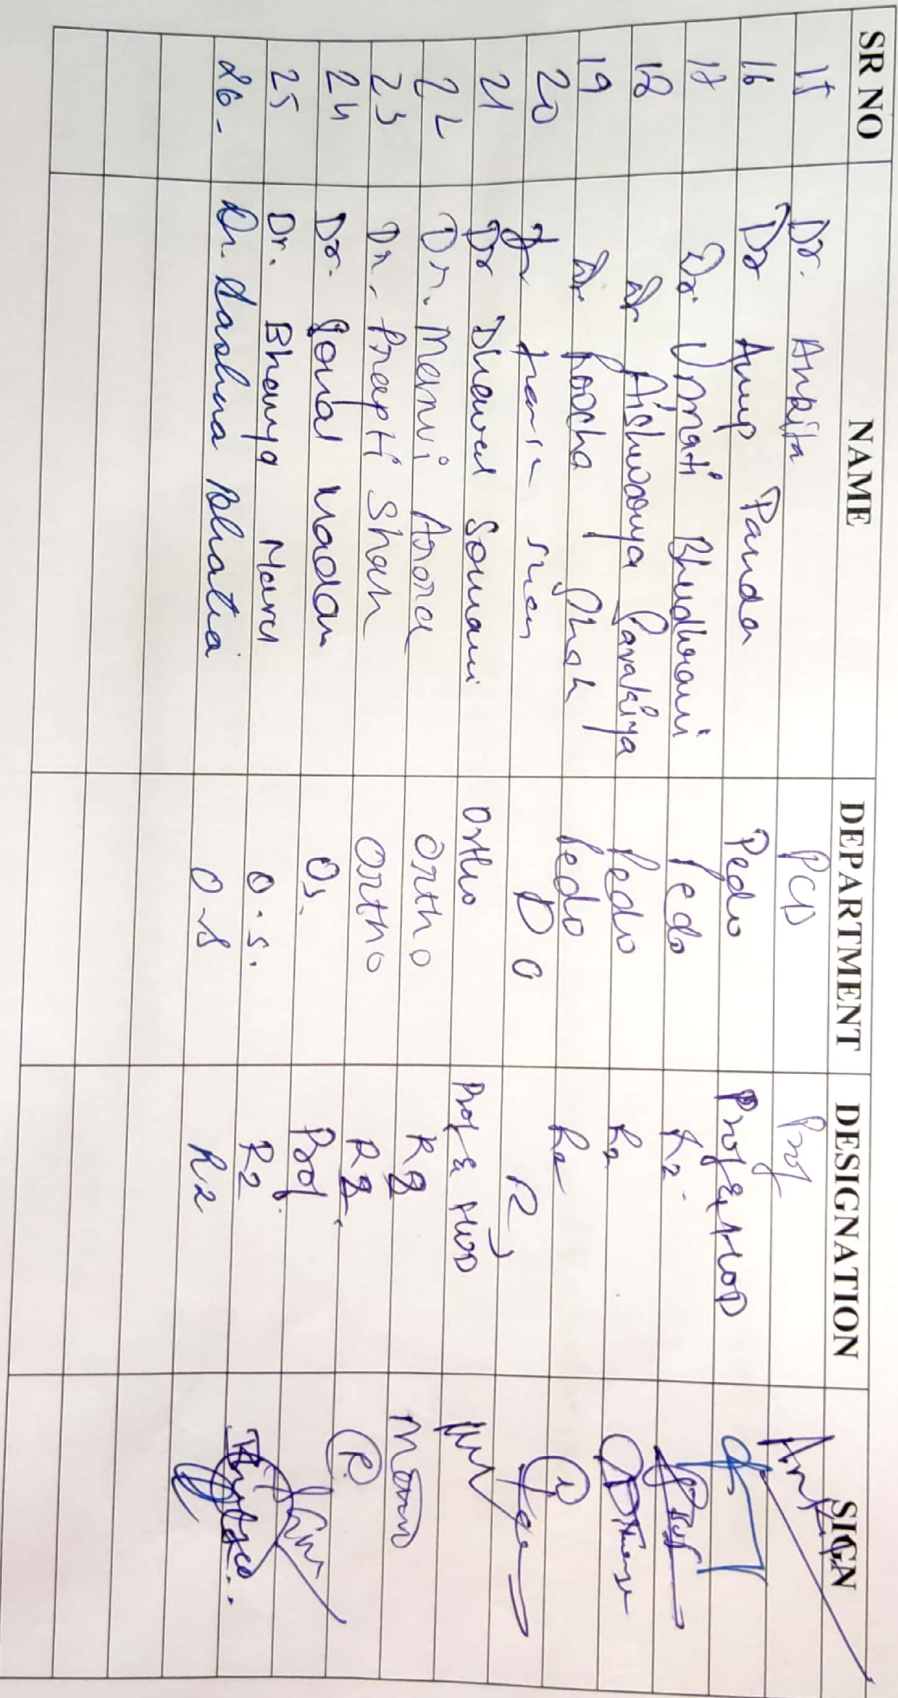 SR NO NAME DEPARTMENT DESIGNATION SIGN
15 Dr. Ankita PCD Prof
16 Dr Anup Panda Pedo Prof & HOD
17 Dr Urmati Bhudhrani Pedo R2
18 Dr Aishwarya Savakiya Pedo R2
19 Dr Shah Pedo R2
20 Dr D O
21 Dr Dhaval Somani Ortho Prof & HOD
22 Dr. Manvi Arora Ortho
23 Dr. Prapti Shah Ortho
24 Dr. Sonal Madan Os. Prof.
25 Dr. Bhavya Maru O.S. R2
26- Dr. Bhatia O.S R2